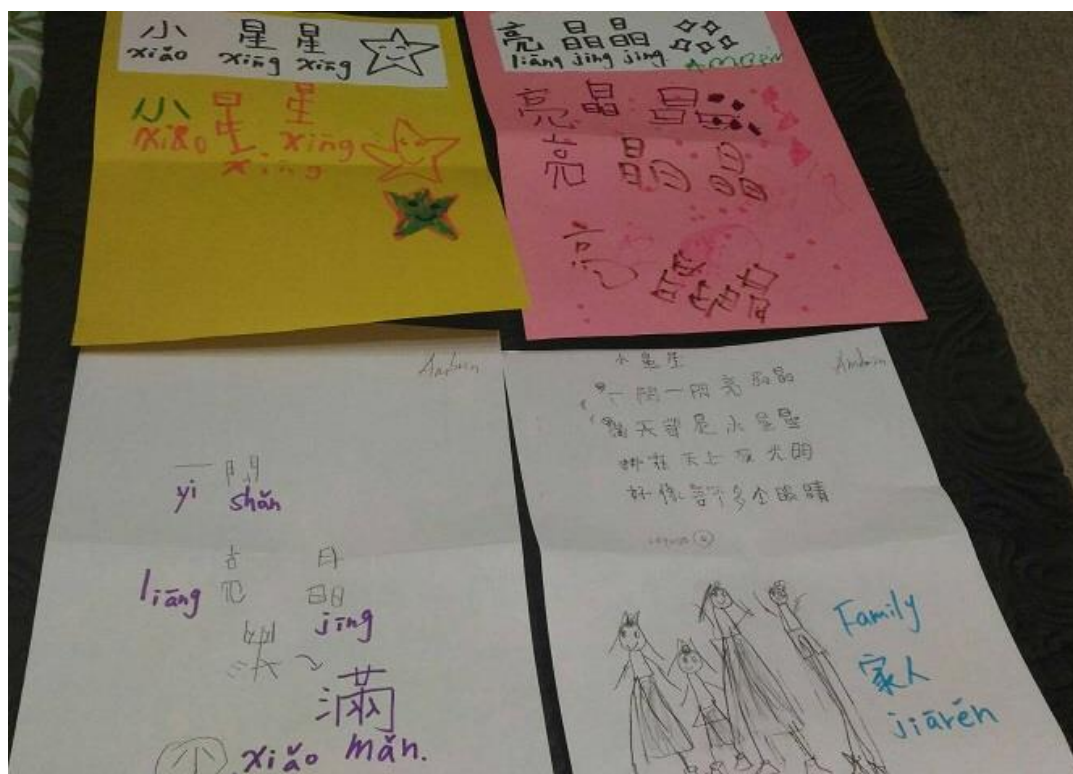 小 星 星
xiǎo xīng xīng
小 星 星
xiǎo xīng
xīng
亮 晶 晶
liāng jīng jīng
亮 晶 晶
亮 晶 晶
亮 晶 晶
一 閃
yi shǎn
亮 晶
liāng jīng
滿
小 xiǎo mǎn.
小星星
一閃一閃亮晶晶
滿天都是小星星
掛在天上放光明
好像許多小眼睛
Family
家人
jiārén